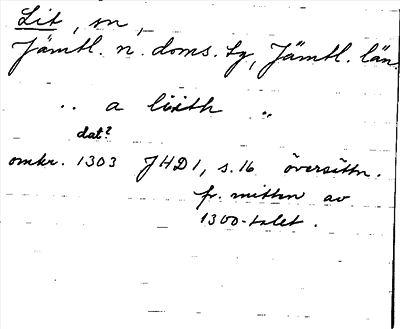 Lit, sn,
Jämtl. n. doms. tg, Jämtl. län.
.. a liith ..
dat?
omkr. 1303 JHD1, s.16 översättn.
fr. mitten av
1300-talet.